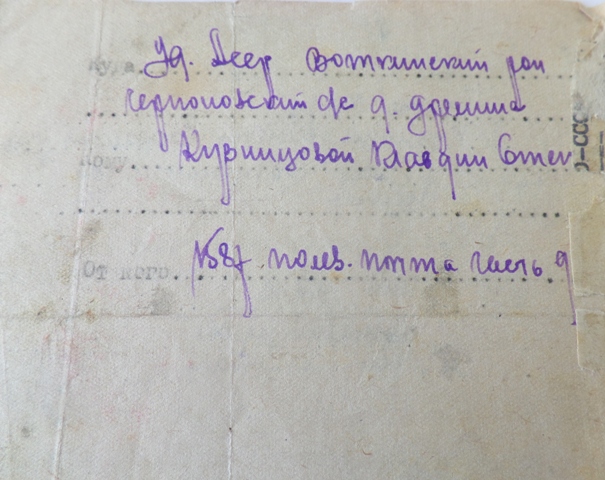 Куда. Уд. Асср Воткинский рон
Черновский с/с д. Дремина
Кому.... Кузнецовой Клавдии Степ
От кого.. 1587 полев. почта часть 9